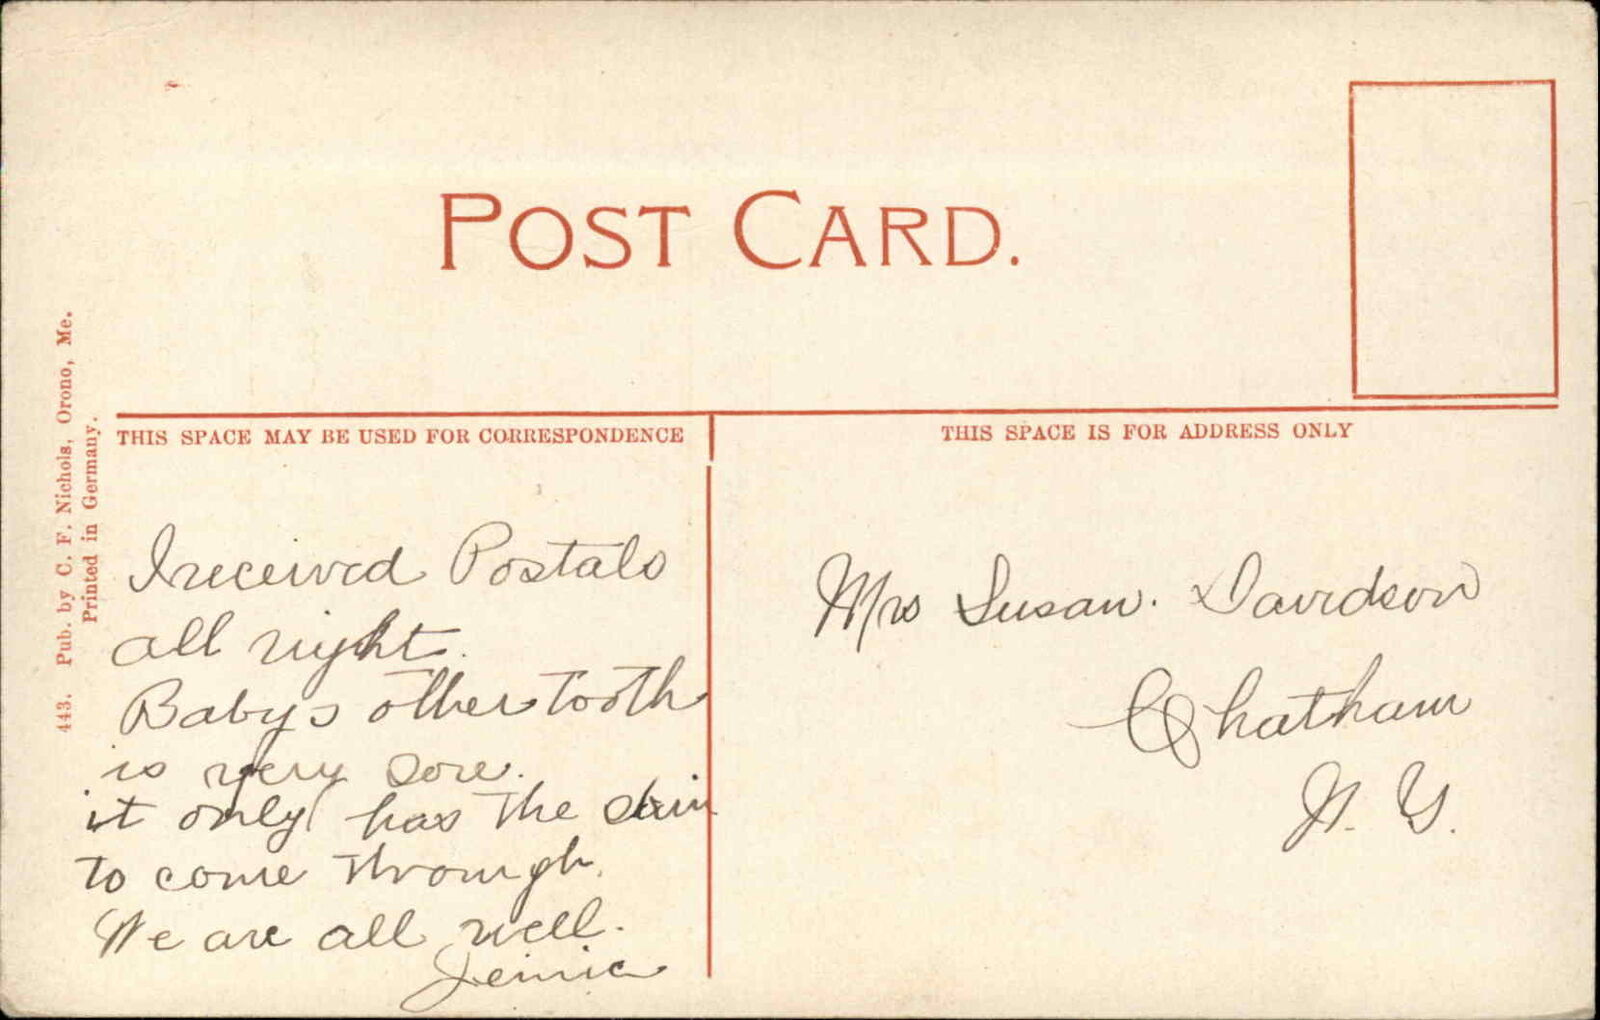 POST CARD.
443. Pub. by C. F. Nichols, Orono, Me.
Printed in Germany.
THIS SPACE MAY BE USED FOR CORRESPONDENCE
I received Postals
all right.
Baby's other tooth
is very sore.
it only has the skin
to come through.
We are all well.
Jennie
THIS SPACE IS FOR ADDRESS ONLY
Mrs Susan. Davidson
Chatham
N. Y.